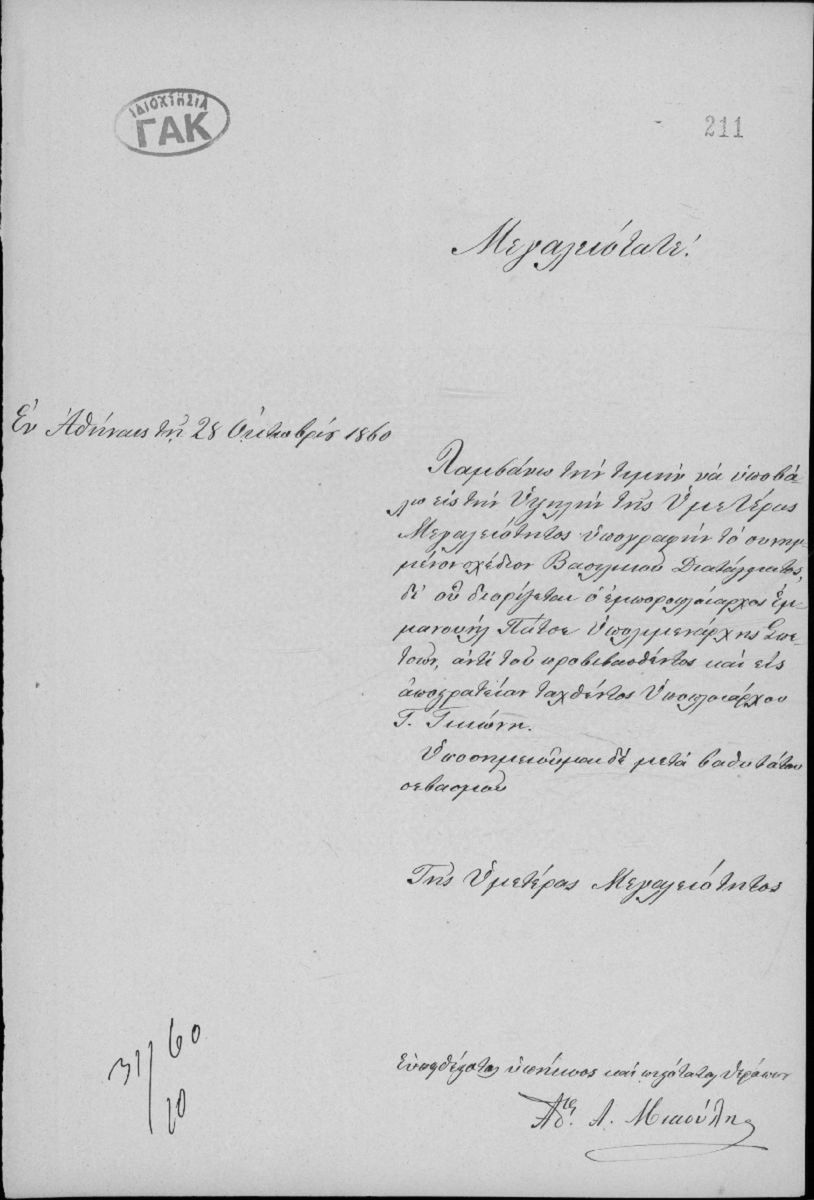 ΙΔΙΟΚΤΗΣΙΑ
ΓΑΚ
211
Μεγαλειότατε!
Ἐν Ἀθήναις τῇ 28 Ὀκτωβρίου 1860
Λαμβάνω τὴν τιμὴν νὰ ὑποβά-
λω εἰς τὴν Ὑψηλὴν τῆς Ὑμετέρας
Μεγαλειότητος ὑπογραφὴν τὸ συνημ-
μένον σχέδιον Βασιλικοῦ Διατάγματος,
δι' οὗ διορίζεται ὁ ἐμποροπλοίαρχος Ἐμ-
μανουὴλ Πάτσε Ὑπολιμενάρχης Σπε-
τσῶν, ἀντὶ τοῦ προβιβασθέντος καὶ εἰς
ἀποστρατείαν ταχθέντος Ὑποπλοιάρχου
Γ. Γκιώνη.
Ὑποσημειοῦμαι δὲ μετὰ βαθυτάτου
σεβασμοῦ
Τῆς Ὑμετέρας Μεγαλειότητος
Εὐπειθέστατος ὑπήκοος καὶ πιστότατος θεράπων
Ἀθ. Α. Μιαούλης
31/10 60